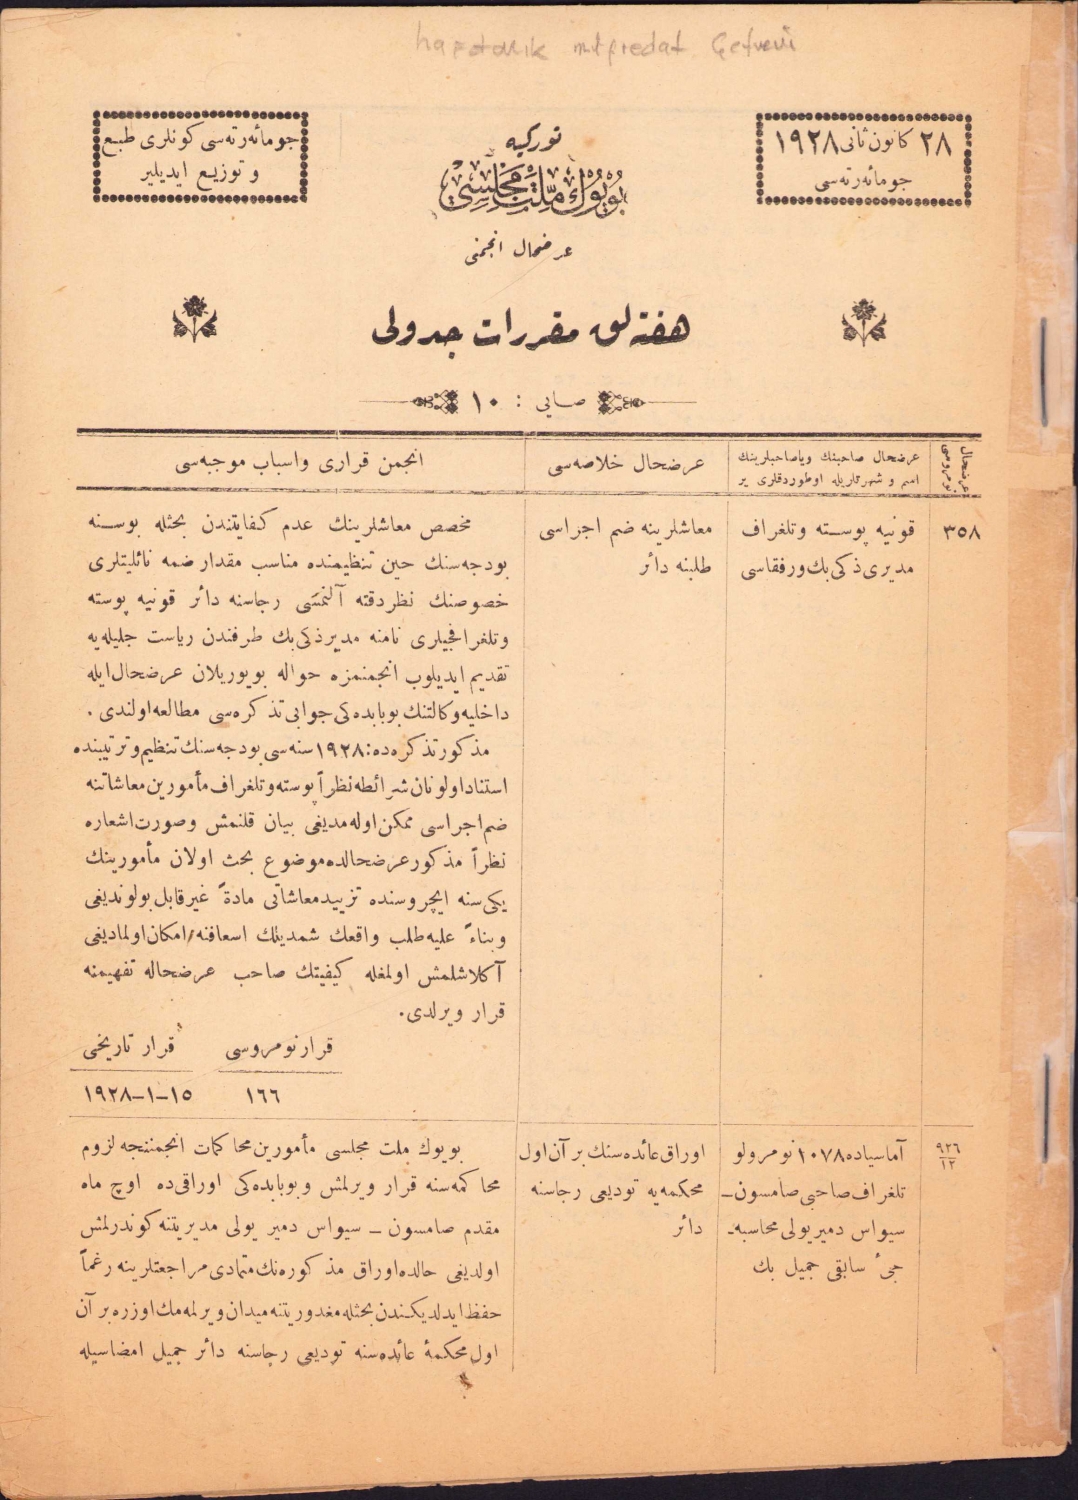 haftalık müfredat Cetveli
٢٨ كانون ثانی ١٩٢٨
جومائه‌رته‌سی
توركیه
بویوك ملت مجلسی
عرضحال انجمنی
جومائه‌رته‌سی كونلری طبع
و توزیع ایدیلیر
هفته‌لق مقررات جدولی
صایی : ١٠
عرضحال نومروسی
عرضحال صاحبنك ویا صاحبلرینك
اسم و شهرتلریله اوطوردقلری یر
عرضحال خلاصه‌سی
انجمن قراری واسباب موجبه‌سی
٣٥٨
قونیه پوسته وتلغراف
مدیری ذكی بك ورفقاسی
معاشلرینه ضم اجراسی
طلبنه دائر
مخصص معاشلرینك عدم كفایتندن بحثله پوسته
بودجه‌سنك حین تنظیمنده مناسب مقدار ضمه نائلیتلری
خصوصنك نظردقته آلنمسی رجاسنه دائر قونیه پوسته
وتلغرافجیلری نامنه مدیر ذكی بك طرفندن ریاست جلیله‌یه
تقدیم ایدیلوب انجمنمزه حواله بویوریلان عرضحال ایله
داخلیه وكالتنك بوبابده‌كی جوابی تذكره‌سی مطالعه اولندی .
مذكور تذكره‌ده: ١٩٢٨ سنه‌سی بودجه‌سنك تنظیم وترتیبنده
استناد اولونان شرائطه نظراً پوسته وتلغراف مأمورین معاشاتنه
ضم اجراسی ممكن اوله‌مدیغی بیان قلنمش وصورت اشعاره
نظراً مذكور عرضحالده موضوع بحث اولان مأمورینك
یكی سنه ایچروسنده تزیید معاشاتی مادةً غیرقابل بولوندیغی
وبناءً علیه طلب واقعك شمدیلك اسعافنه امكان اولمادیغی
آكلاشلمش اولمغله كیفیتك صاحب عرضحاله تفهیمنه
قرار ویرلدی.
قرار نومروسی قرار تاریخی
١٦٦ ١٥-١-١٩٢٨
٩٢٦
١٢
آماسیاده ١٠٧٨ نومرولو
تلغراف صاحبی صامسون ـ
سیواس دمیر یولی محاسبه‌ـ
جیٔ سابقی جمیل بك
اوراق عائده‌سنك بر آن اول
محكمه‌یه تودیعی رجاسنه
دائر
بویوك ملت مجلسی مأمورین محاكمات انجمننجه لزوم
محاكمه‌سنه قرار ویرلمش وبوبابده‌كی اوراقی‌ده اوچ ماه
مقدم صامسون ـ سیواس دمیر یولی مدیریتنه كوندرلمش
اولدیغی حالده اوراق مذكوره‌نك متمادی مراجعتلرینه رغماً
حفظ ایدلدیكندن بحثله مغدوریتنه میدان ویرلمه‌مك اوزره بر آن
اول محكمهٔ عائده‌سنه تودیعی رجاسنه دائر جمیل امضاسیله